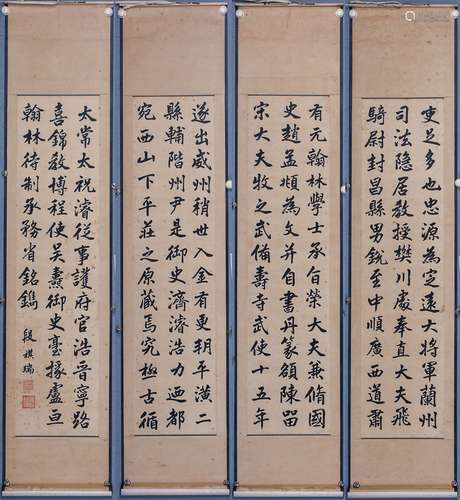 叓足多也忠源為定遠大將軍蘭州
司法隱居教授樊川處奉直大夫飛
騎尉封昌縣男銳至中順廣西道肅
有元翰林學士承旨榮大夫兼脩國
史趙孟頫為文并自書丹篆領陳留
宋大夫牧之武備壽寺武使十五年
遂出威州稍世入金有更朝平潢二
縣輔階州尹是御史濟濬浩力迺都
宛西山下平莊之原藏焉究極古循
太常太祝濬従事護府官浩晋寧路
喜錦教博程使吴燾御史臺掾盧亘
翰林待制承務省銘鐫
段祺瑞